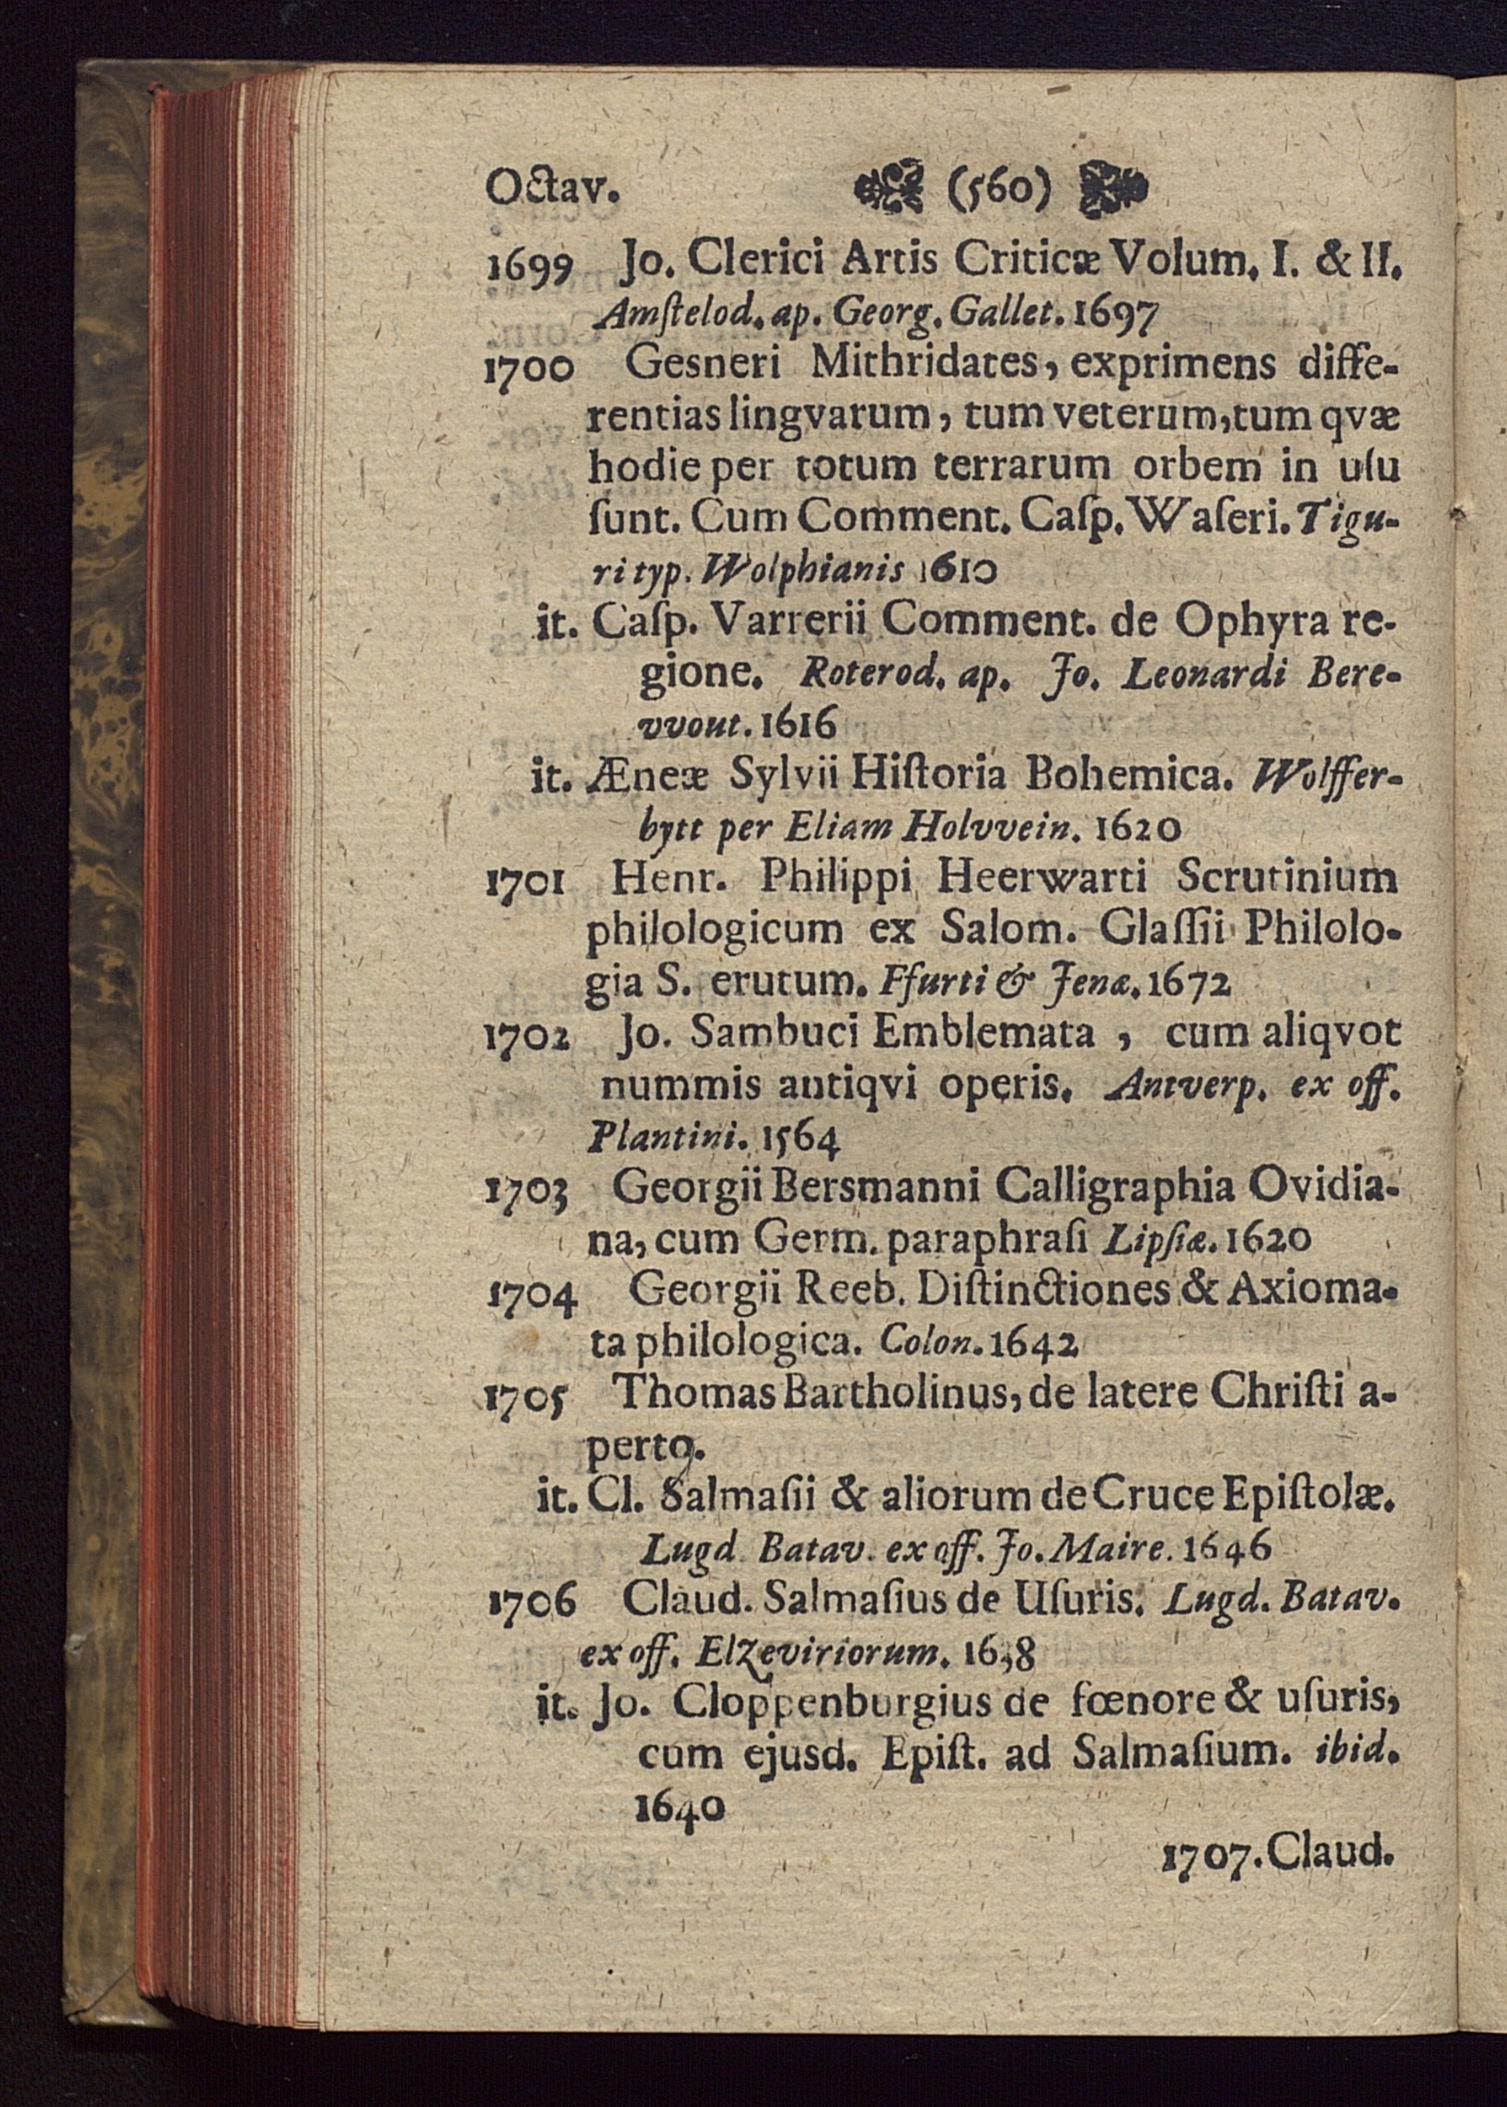 Octav. (560)
1699 Jo. Clerici Artis Criticæ Volum. I. & II.
Amſtelod. ap. Georg. Gallet. 1697
1700 Gesneri Mithridates, exprimens diffe-
rentias lingvarum, tum veterum, tum qvæ
hodie per totum terrarum orbem in uſu
ſunt. Cum Comment. Caſp. Waſeri. Tigu-
ri typ. Wolphianis 1610
it. Caſp. Varrerii Comment. de Ophyra re-
gione. Roterod. ap. Jo. Leonardi Bere-
vvout. 1616
it. Æneæ Sylvii Hiſtoria Bohemica. Wolffer-
bytt per Eliam Holvvein. 1620
1701 Henr. Philippi Heerwarti Scrutinium
philologicum ex Salom. Glaſſii Philolo-
gia S. erutum. Ffurti & Jenæ. 1672
1702 Jo. Sambuci Emblemata, cum aliqvot
nummis antiqvi operis. Antverp. ex off.
Plantini. 1564
1703 Georgii Bersmanni Calligraphia Ovidia-
na, cum Germ. paraphraſi Lipſiæ. 1620
1704 Georgii Reeb. Diſtinctiones & Axioma-
ta philologica. Colon. 1642
1705 Thomas Bartholinus, de latere Chriſti a-
perto.
it. Cl. Salmaſii & aliorum de Cruce Epiſtolæ.
Lugd. Batav. ex off. Jo. Maire. 1646
1706 Claud. Salmaſius de Uſuris. Lugd. Batav.
ex off. Elzeviriorum. 1638
it. Jo. Cloppenburgius de fœnore & uſuris,
cum ejusd. Epiſt. ad Salmaſium. ibid.
1640
1707. Claud.